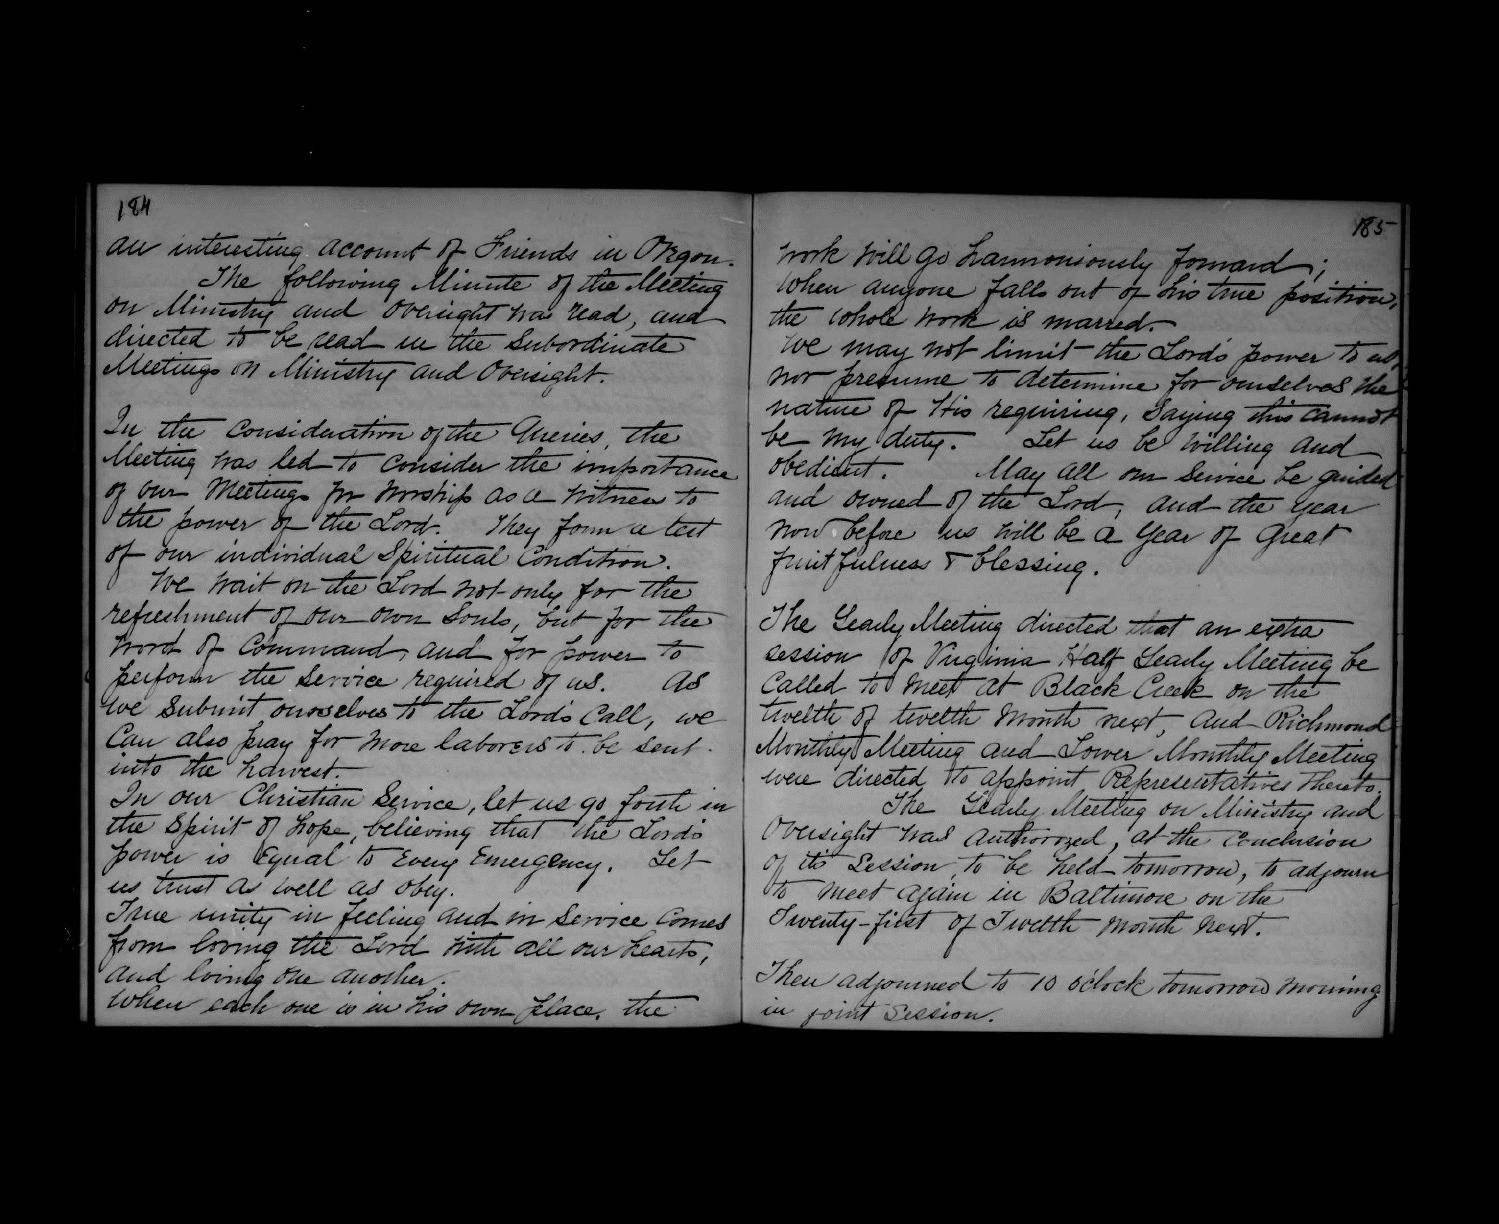 184
an interesting account of Friends in Oregon.
The following Minute of the Meeting
on Ministry and Oversight was read, and
directed to be read in the Subordinate
Meetings on Ministry and Oversight.
In the consideration of the Queries, the
Meeting was led to consider the importance
of our Meetings for Worship as a witness to
the power of the Lord. They form a test
of our individual Spiritual Condition.
We wait on the Lord not only for the
refreshment of our own Souls, but for the
word of Command, and for power to
perform the Service required of us. As
we Submit ourselves to the Lord's Call, we
Can also pray for more laborers to be sent
into the harvest.
In our Christian Service, let us go forth in
the Spirit of hope, believing that the Lord's
power is Equal to Every Emergency. Let
us trust as well as obey.
True unity in feeling and in Service Comes
from loving the Lord with all our hearts,
and loving one another.
When each one is in his own place, the
185
work will go harmoniously forward;
When anyone falls out of his true position,
the whole work is marred.
We may not limit the Lord's power to us,
nor presume to determine for ourselves the
nature of His requiring, Saying this cannot
be my duty. Let us be willing and
obedient. May all our Service be guided
and owned of the Lord, and the year
now before us will be a year of Great
fruitfulness & blessing.
The Yearly Meeting directed that an extra
session of Virginia Half Yearly Meeting be
Called to meet at Black Creek on the
twelth of twelth month next, and Richmond
Monthly Meeting and Lower Monthly Meeting
were directed to appoint Representatives thereto.
The Yearly Meeting on Ministry and
Oversight was authorozed, at the Conclusion
of its Session, to be held tomorrow, to adjourn
to meet again in Baltimore on the
Twenty-first of Twelth month next.
Then adjourned to 10 o'clock tomorrow morning
in joint Session.